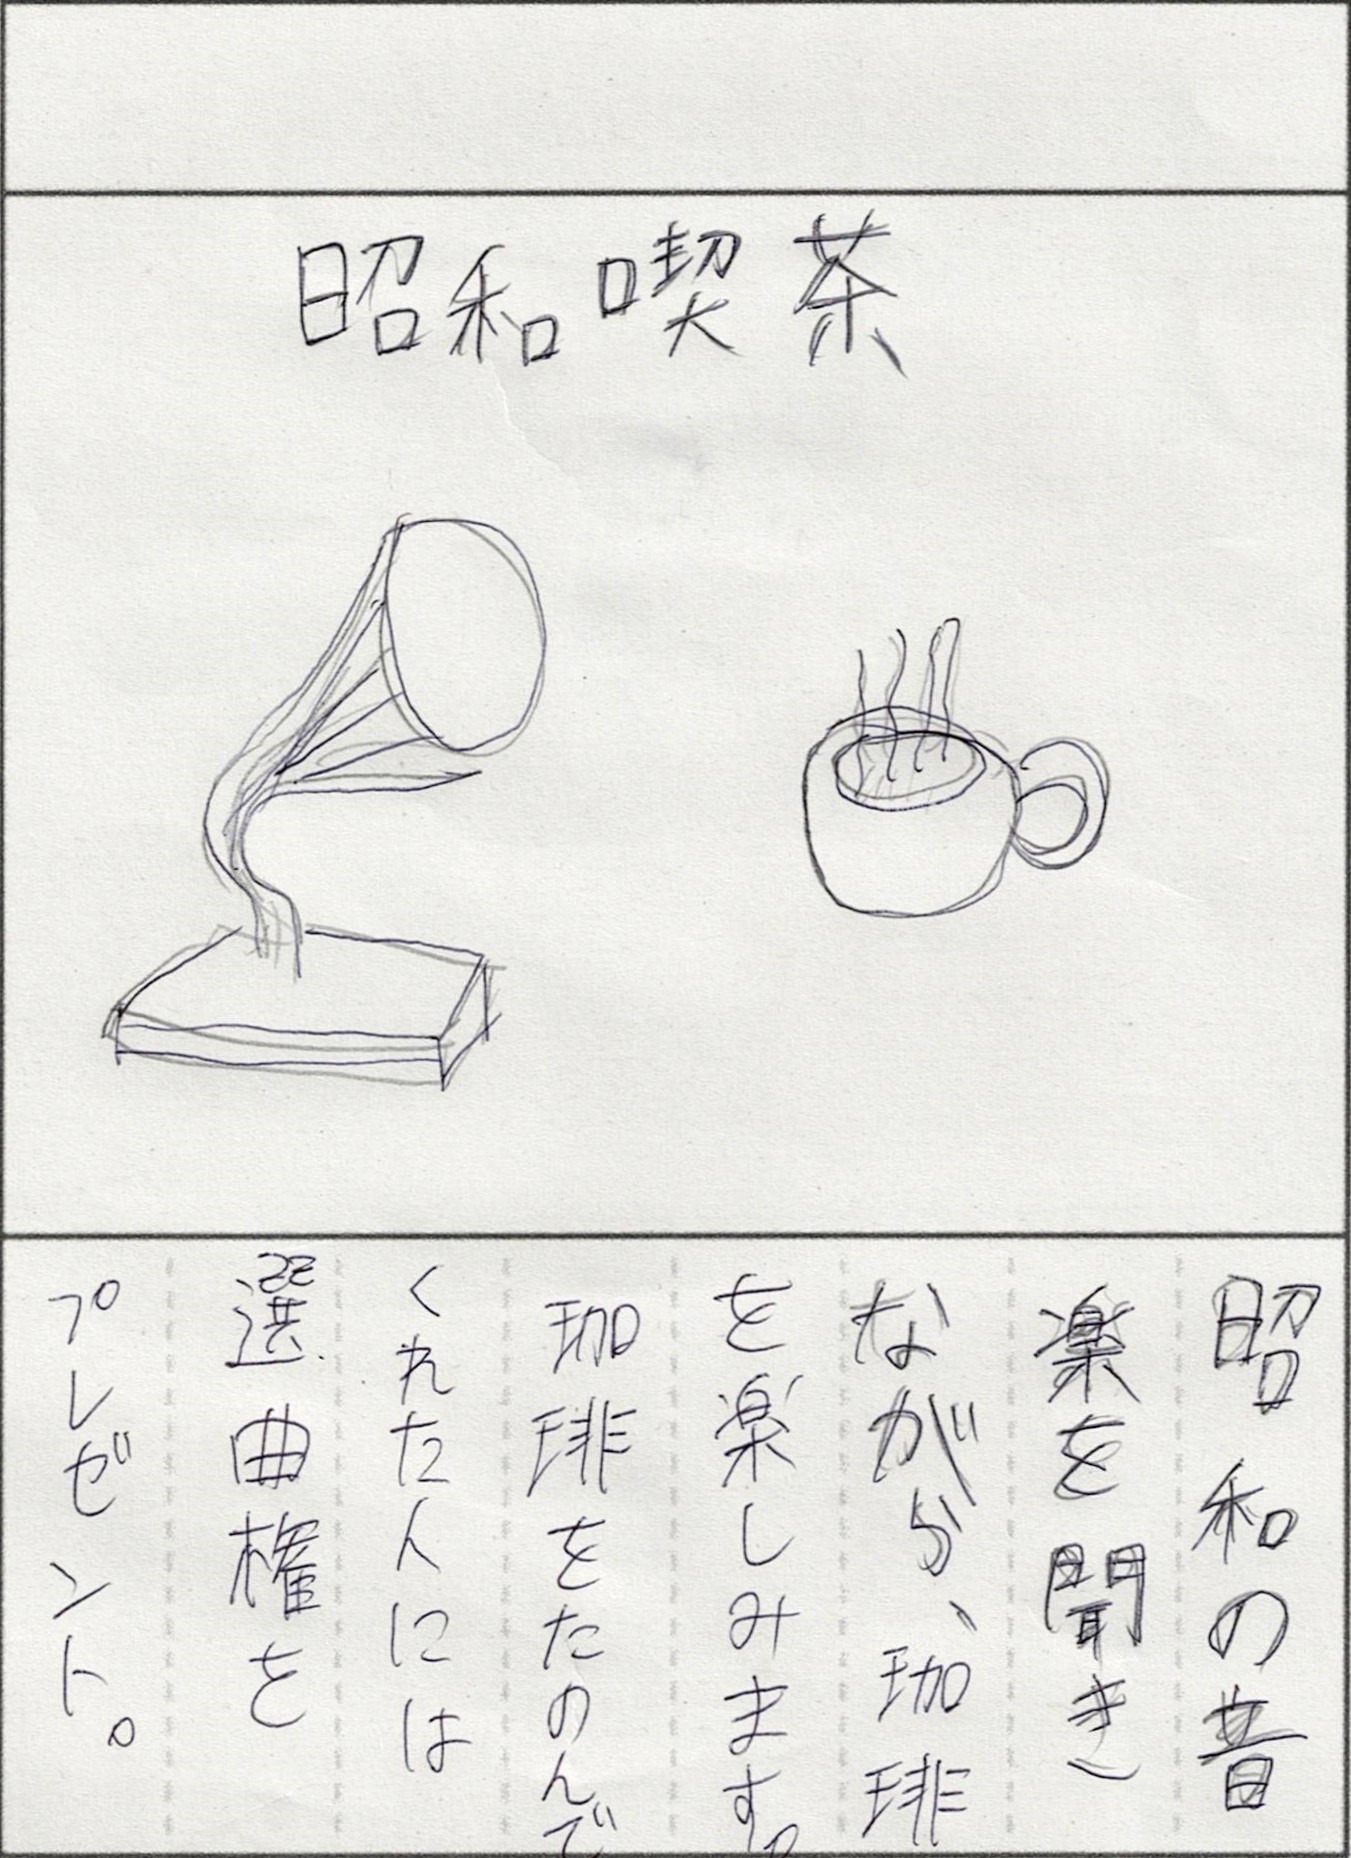 昭和喫茶
昭和の音
楽を聞き
ながら、珈琲
を楽しみます。
珈琲をたのんで
くれた人には
選曲権を
プレゼント。